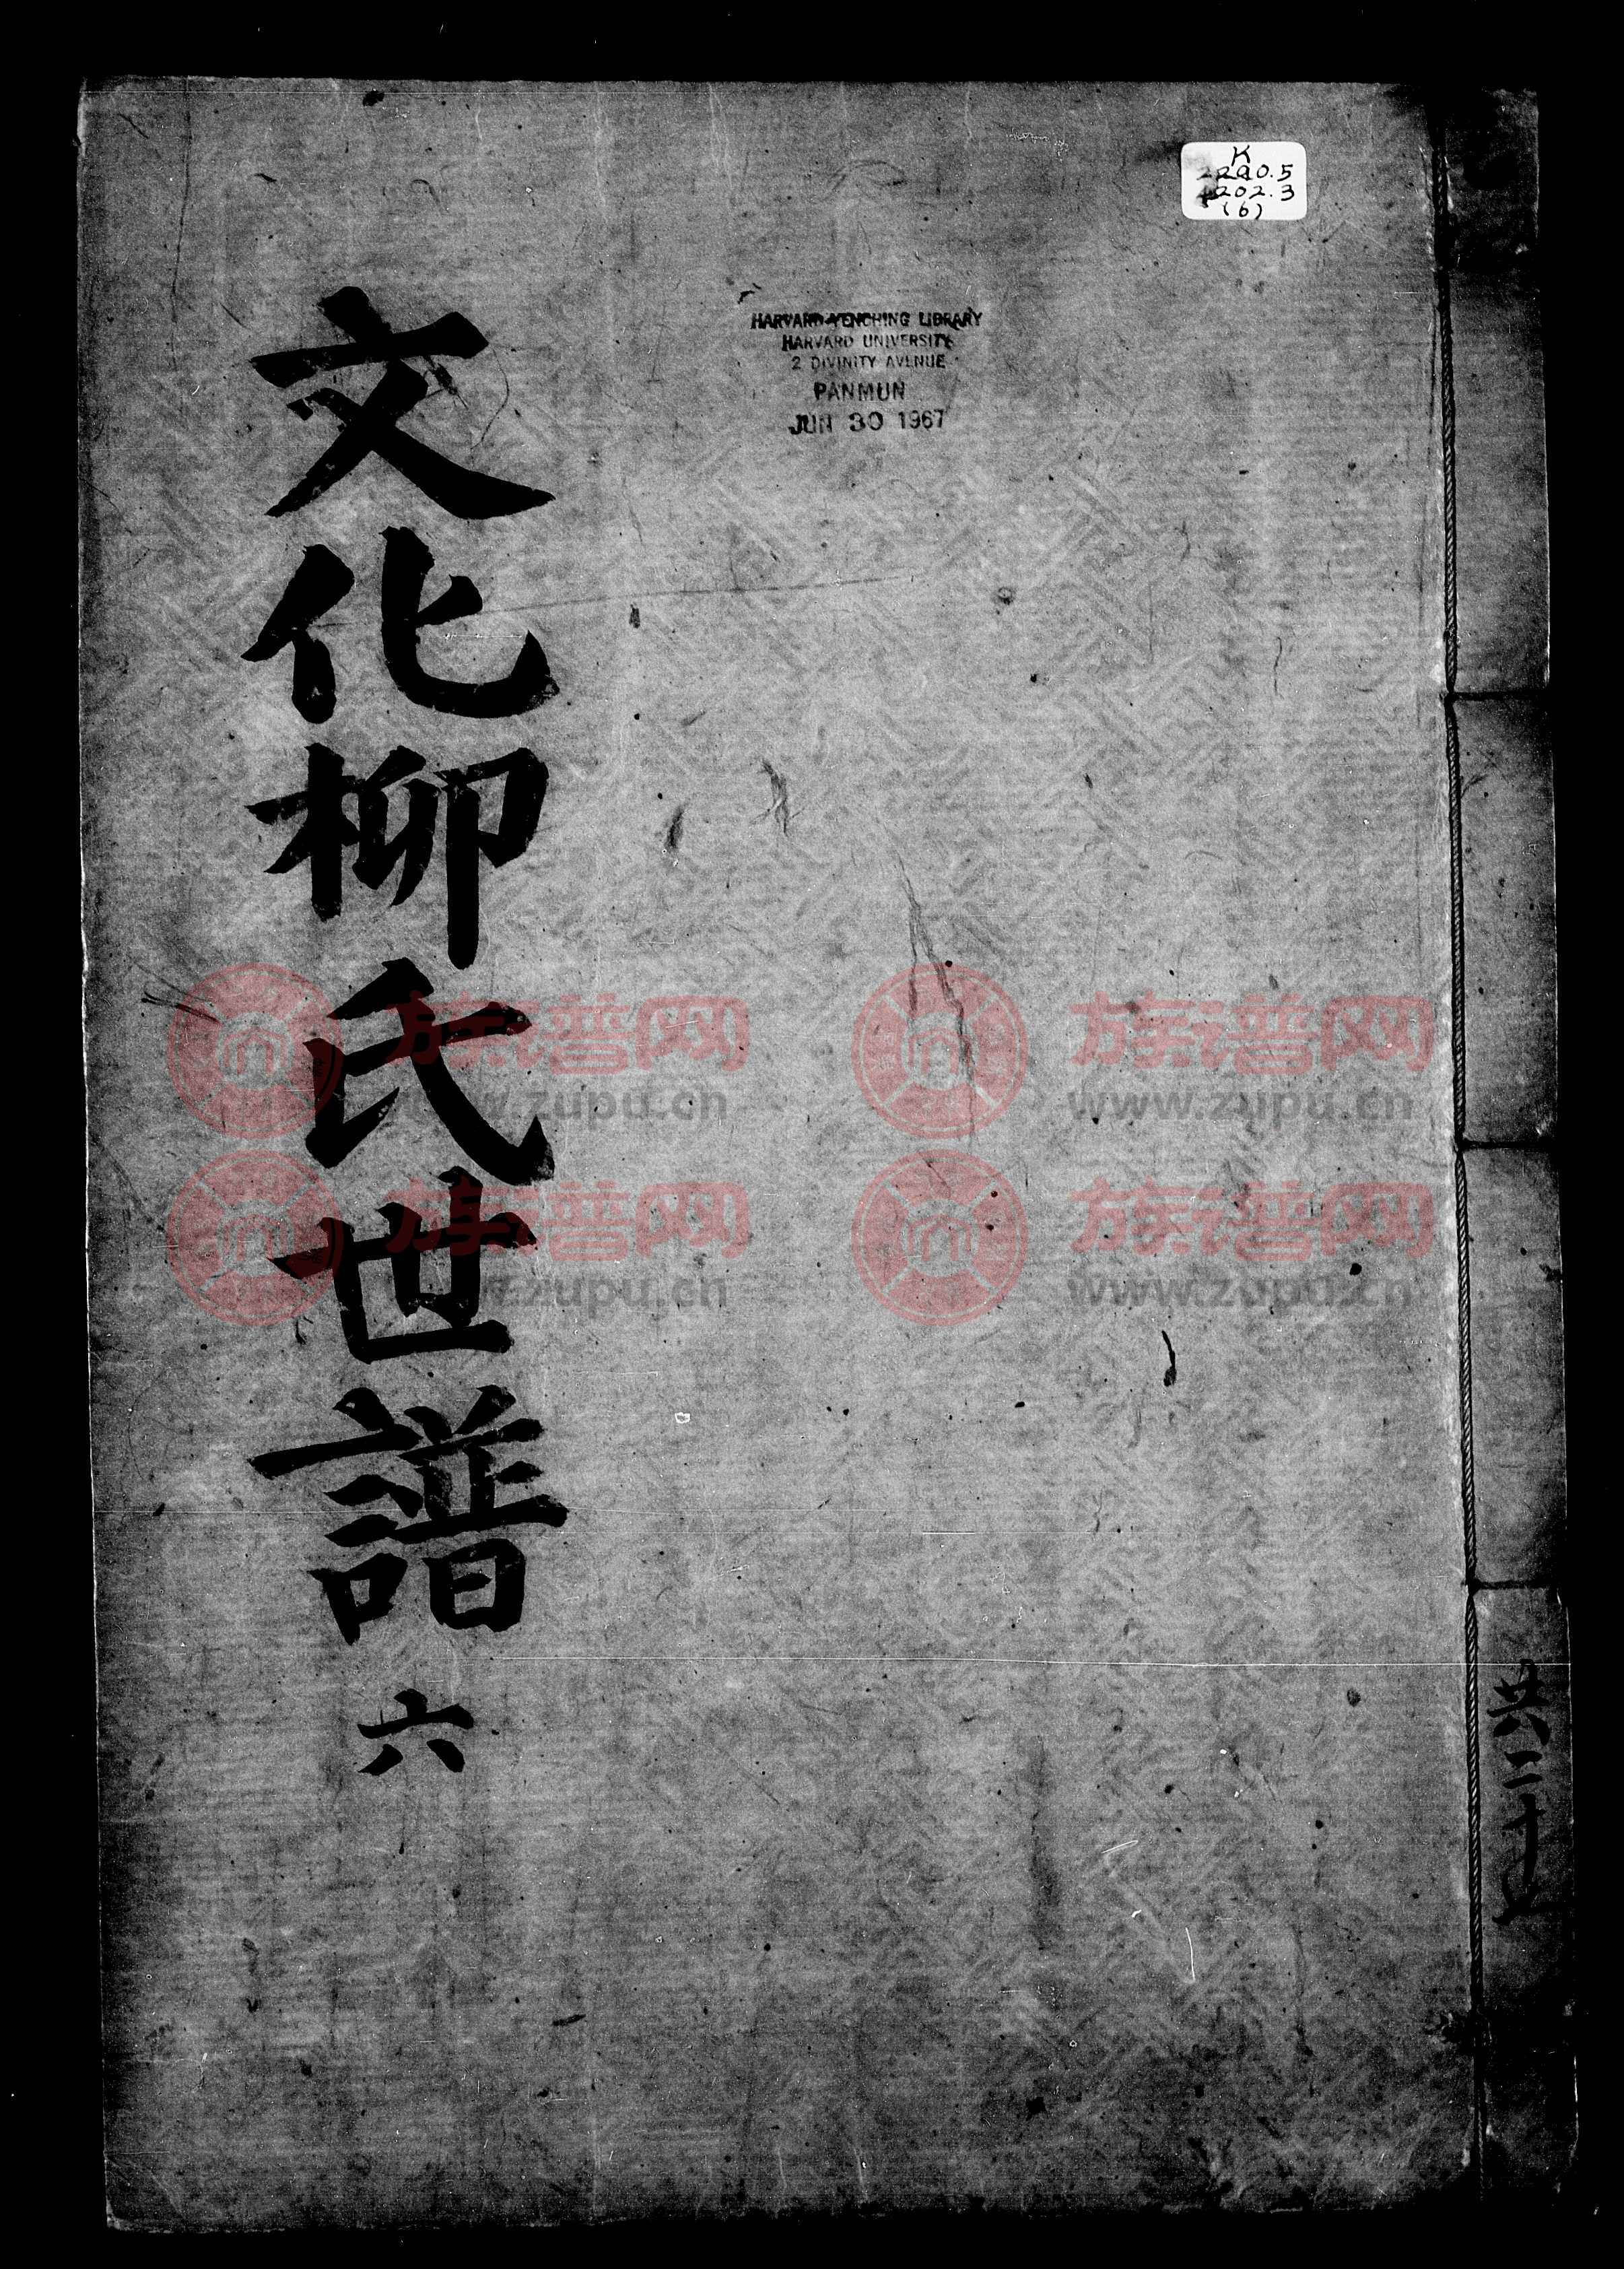 K
2290.5
4202.3
(6)
HARVARD-YENCHING LIBRARY
HARVARD UNIVERSITY
2 DIVINITY AVENUE
PANMUN
JUN 30 1967
文化柳氏世譜 六
共二十
族谱网
www.zupu.cn
族谱网
www.zupu.cn
族谱网
www.zupu.cn
族谱网
www.zupu.cn